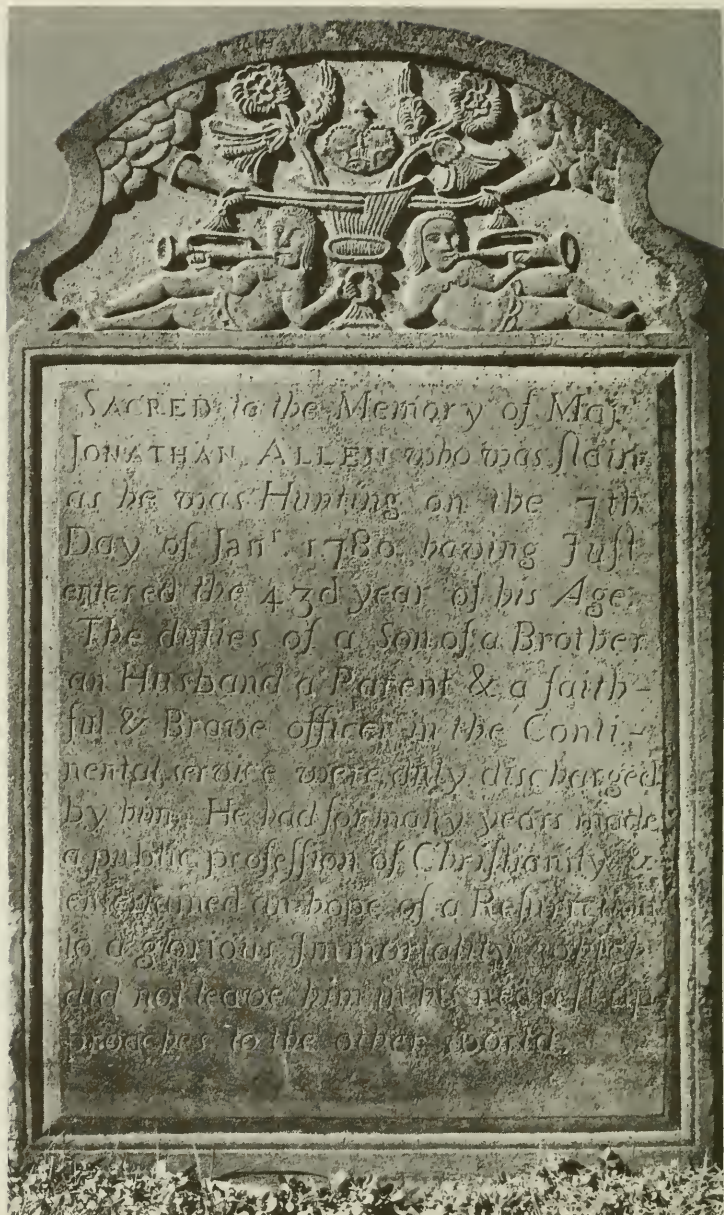 SACRED to the Memory of Maj.
JONATHAN ALLEN who was ſlain
as he was Hunting on the 7th
Day of Janʳ. 1780 having Juſt
entered the 43d year of his Age.
The duties of a Son of a Brother
an Husband a Parent & a faith-
ful & Brave officer in the Conti-
nental service were duly discharged
by him. He had for many years made
a public profeſſion of Chriſtianity &
entertained an hope of a Reſurrection
to a glorious Immortality which
did not leave him in his neareſt ap
proaches to the other world.